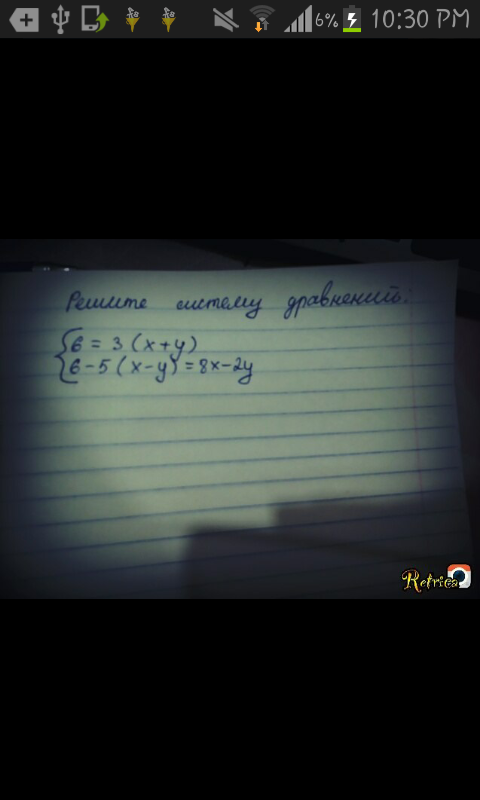 6% 10:30 PM
Решите систему уравнений:
6 = 3 (x+y)
6-5 (x-y) = 8x-2y
Retrica